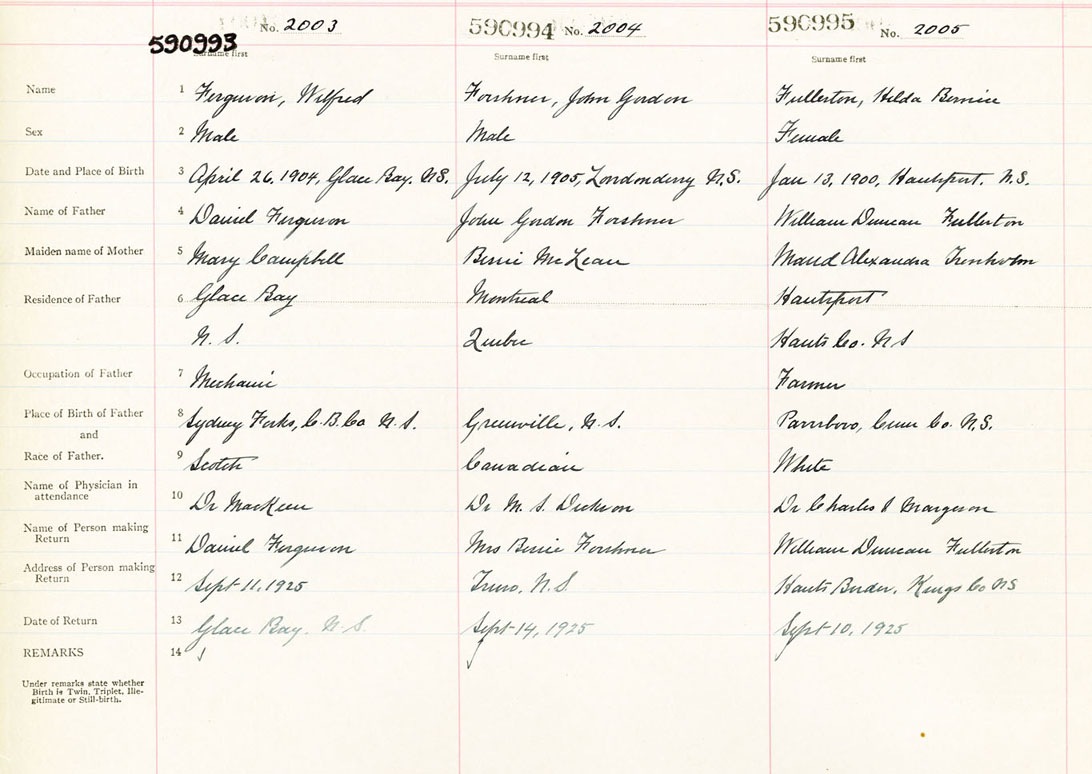 590993 No. 2003 590994 No. 2004 590995 No. 2005
Surname first Surname first Surname first
Name 1 Ferguson, Wilfred Forshner, John Gordon Fullerton, Hilda Bernice
Sex 2 Male Male Female
Date and Place of Birth 3 April 26, 1904, Glace Bay. N.S. July 12, 1905, Londonderry N.S. Jan 13, 1900, Hantsport. N.S.
Name of Father 4 Daniel Ferguson John Gordon Forshner William Duncan Fullerton
Maiden name of Mother 5 Mary Campbell Bessie McLean Maud Alexandra Trenholm
Residence of Father 6 Glace Bay Montreal Hantsport
N. S. Quebec Hants Co. N S
Occupation of Father 7 Mechanic Farmer
Place of Birth of Father 8 Sydney Forks, C.B.Co N.S. Greenville, N.S. Parrsboro, Cum Co. N.S.
and
Race of Father. 9 Scotch Canadian White
Name of Physician in
attendance 10 Dr MacKeen Dr M. S. Dickson Dr Charles Margeson
Name of Person making
Return 11 Daniel Ferguson Mrs Bessie Forshner William Duncan Fullerton
Address of Person making
Return 12 Sept 11, 1925 Truro, N.S. Hants Border, Kings Co NS
Date of Return 13 Glace Bay. N.S. Sept 14, 1925 Sept 10, 1925
REMARKS 14
Under remarks state whether
Birth is Twin, Triplet, Ille-
gitimate or Still-birth.